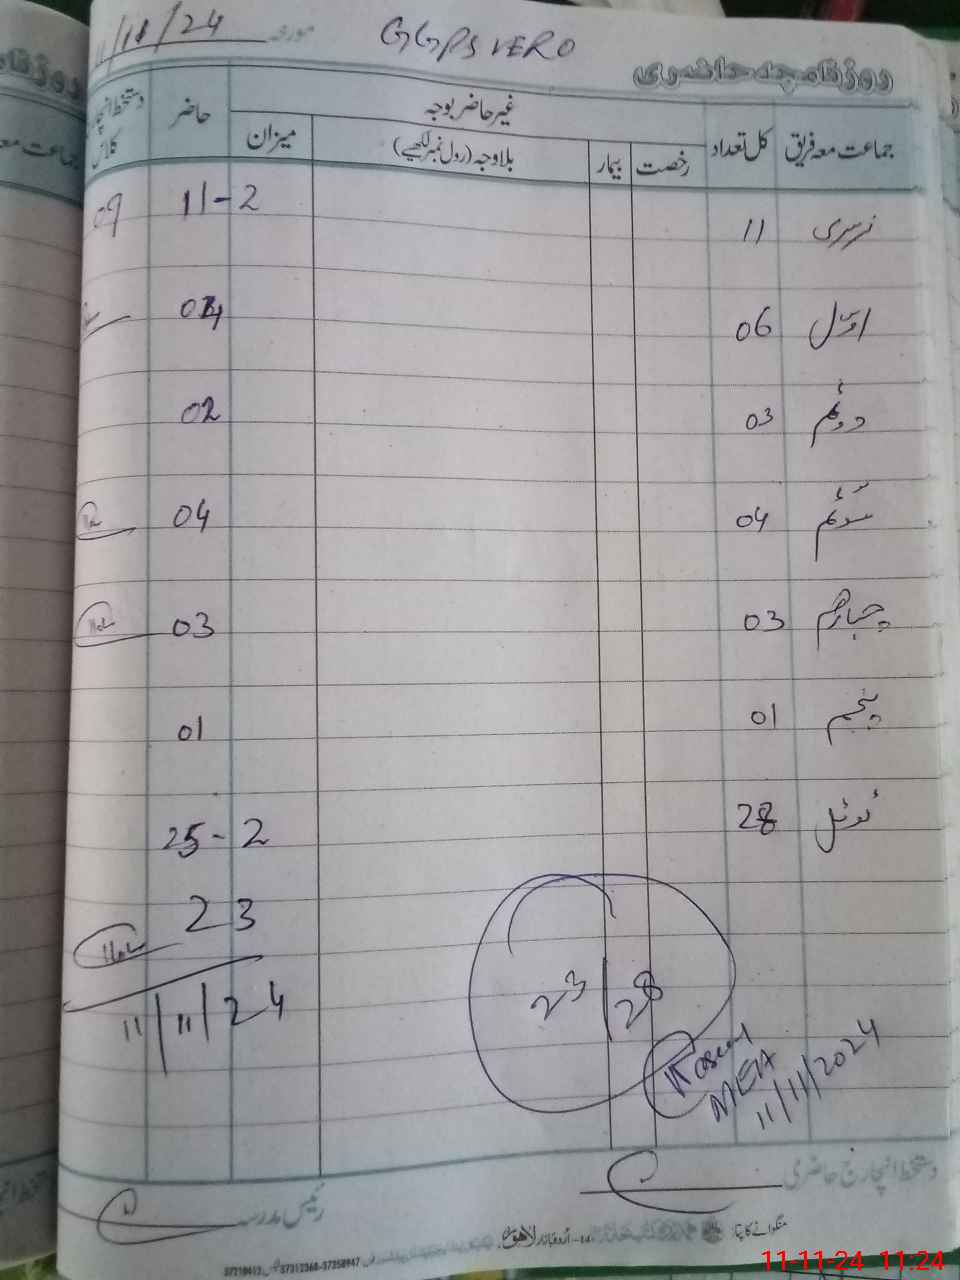 11/11/24 مورخہ GGPS VERO
روزنامچہ حاضری
جماعت معہ فریق کل تعداد غیر حاضر بوجہ حاضر دستخط انچارج کلاس
رخصت بیمار بلاوجہ (رول نمبر لکھیے) میزان
نرسری 11 11-2 09
اول 06 04
دوئم 03 02
سوئم 04 04
چہارم 03 03
پنجم 01 01
ٹوٹل 28 25-2
23
23/28
11/11/24
MEA
11/11/2024
دستخط انچارج حاضری
رئیس مدرسہ
منگوانے کا پتا:
اُردو بازار لاہور
37210412 37312368-37358947
11-11-24 11:24